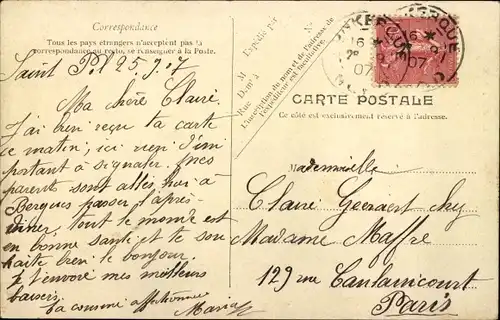 Correspondance
Tous les pays étrangers n'acceptent pas la
correspondance au recto, se renseigner à la Poste.
M
Expédié par
M
Dem à
Rue
N°
L'inscription du nom et de l'adresse de
l'expéditeur est facultative.
DUNKERQUE
16
07
DUNKERQUE
16
07
CARTE POSTALE
Ce côté est exclusivement réservé à l'adresse.
Saint Pl 25 9. 7
Ma chère Claire
J'ai bien reçu ta carte
ce matin, ici rien d'im
portant à signaler. mes
parents sont allés hier à
Bergues passer l'après-
diner, tout le monde est
en bonne santé et te sou
haite bien le bonjour.
Je t'envoie mes meilleurs
baisers.
Ta cousine affectionnée
Maria
Mademoiselle
Claire Geeraert chez
Madame Maffre
129 rue Caulaincourt
Paris